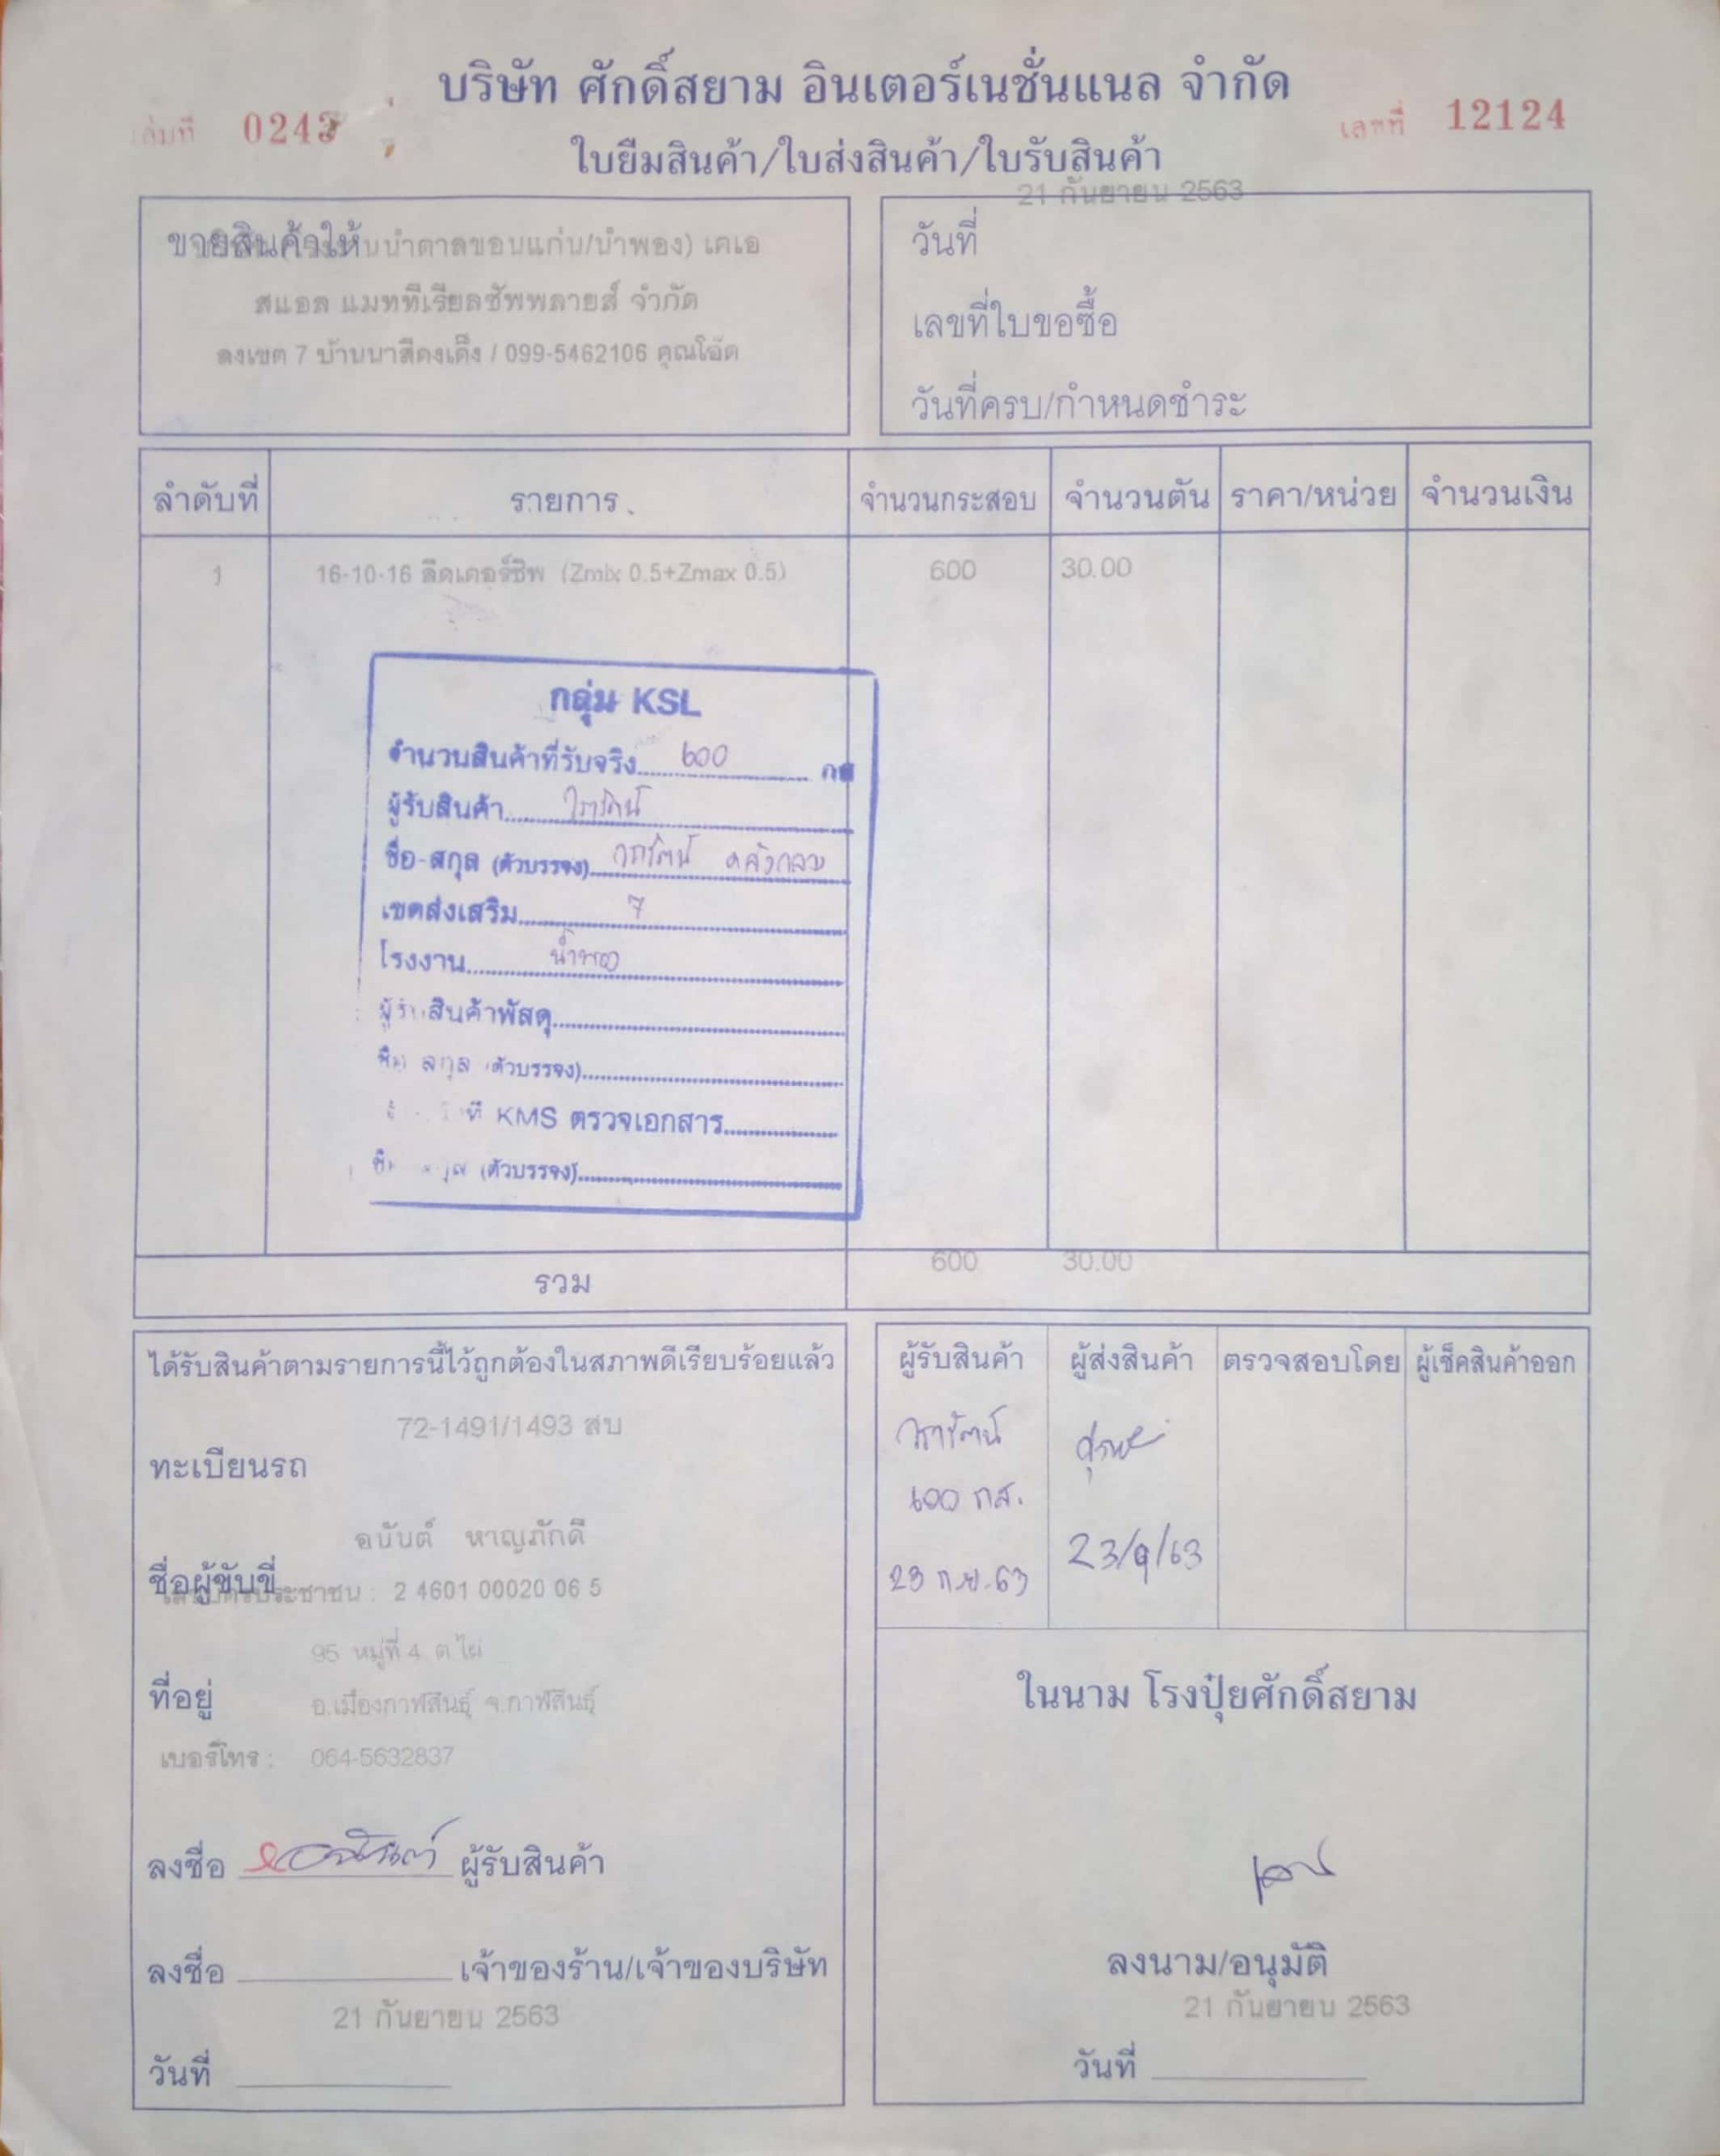 บริษัท ศักดิ์สยาม อินเตอร์เนชั่นแนล จำกัด
เล่มที่ 0243
เลขที่ 12124
ใบยืมสินค้า/ใบส่งสินค้า/ใบรับสินค้า
21 กันยายน 2563
ขายสินค้าให้ เคเอ
สแอล แมททีเรียลซัพพลายส์ จำกัด
ลงเขต 7 บ้านนาสีดงเค็ง / 099-5462106 คุณโอ๊ด
วันที่
เลขที่ใบขอซื้อ
วันที่ครบ/กำหนดชำระ
ลำดับที่ รายการ จำนวนกระสอบ จำนวนตัน ราคา/หน่วย จำนวนเงิน
1 16-10-16 ลีดเดอร์ชิพ (Zmix 0.5+Zmax 0.5) 600 30.00
กลุ่ม KSL
จำนวนสินค้าที่รับจริง 600 กส
ผู้รับสินค้า
ชื่อ-สกุล (ตัวบรรจง)
เขตส่งเสริม 7
โรงงาน น้ำพอง
ผู้รับสินค้าพัสดุ
ชื่อ สกุล (ตัวบรรจง)
KMS ตรวจเอกสาร
ชื่อ สกุล (ตัวบรรจง)
รวม 600 30.00
ได้รับสินค้าตามรายการนี้ไว้ถูกต้องในสภาพดีเรียบร้อยแล้ว
72-1491/1493 สบ
ทะเบียนรถ
อนันต์ หาญภักดี
ชื่อผู้ขับขี่
เลขบัตรประชาชน : 2 4601 00020 06 5
95 หมู่ที่ 4 ต ไผ่
ที่อยู่ อ.เมืองกาฬสินธุ์ จ.กาฬสินธุ์
เบอร์โทร : 064-5632837
ลงชื่อ อนันต์ ผู้รับสินค้า
ลงชื่อ เจ้าของร้าน/เจ้าของบริษัท
21 กันยายน 2563
วันที่
ผู้รับสินค้า ผู้ส่งสินค้า ตรวจสอบโดย ผู้เช็คสินค้าออก
600 กส.
23 ก.ย. 63
23/9/63
ในนาม โรงปุ๋ยศักดิ์สยาม
ลงนาม/อนุมัติ
21 กันยายน 2563
วันที่